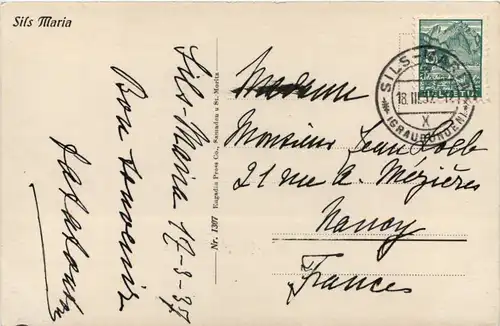 Sils Maria
Sils-Maria 17-8-37
Bon souvenir
Nr. 1307 Engadin Press Co., Samaden u. St. Moritz
SILS-
18.III.37
X
(GRAUBÜNDEN)
HELVETIA
Madame
Monsieur Jean
21 rue A. Mézières
Nancy
France